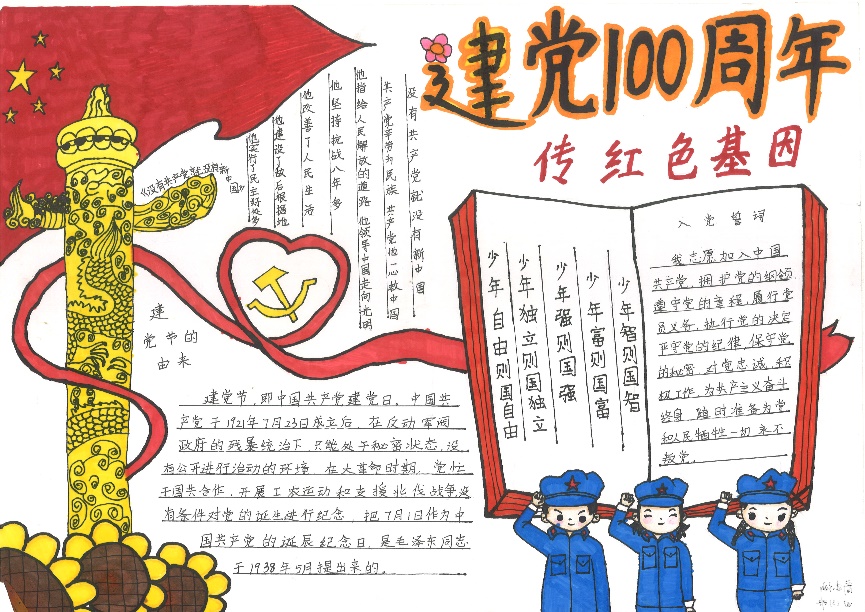 建党100周年
传红色基因
《没有共产党就没有新中国》
没有共产党就没有新中国
共产党辛劳为民族 共产党他一心救中国
他指给人民解放的道路 他领导中国走向光明
他坚持抗战八年多
他改善了人民生活
他建设了敌后根据地
他实行了民主好处多
建党节的由来
建党节,即中国共产党建党日。中国共
产党于1921年7月23日成立后,在反动军阀
政府的残暴统治下,只能处于秘密状态,没
有公开进行活动的环境。在大革命时期,党忙
于国共合作,开展工农运动和支援北伐战争,没
有条件对党的诞生进行纪念。把7月1日作为中
国共产党的诞辰纪念日,是毛泽东同志
于1938年5月提出来的。
少年智则国智
少年富则国富
少年强则国强
少年独立则国独立
少年自由则国自由
入党誓词
我志愿加入中国
共产党,拥护党的纲领
遵守党的章程,履行党
员义务,执行党的决定
严守党的纪律,保守党
的秘密,对党忠诚,积
极工作,为共产主义奋斗
终身,随时准备为党
和人民牺牲一切,永不
叛党。